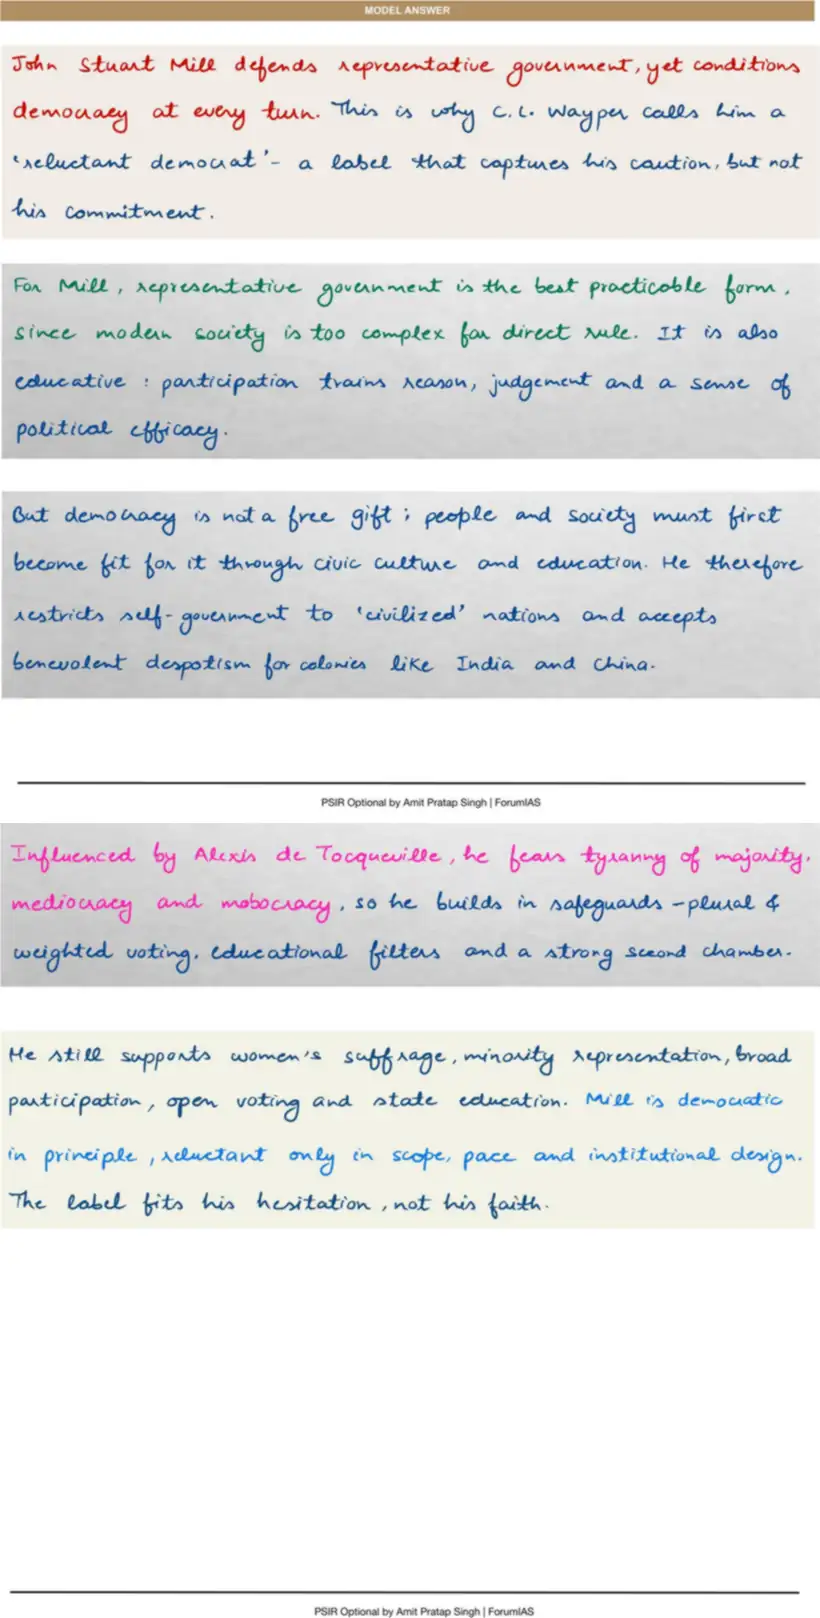 MODEL ANSWER
John Stuart Mill defends representative government, yet conditions
democracy at every turn. This is why C.L. Wayper calls him a
'reluctant democrat' - a label that captures his caution, but not
his commitment.
For Mill, representative government is the best practicable form,
since modern society is too complex for direct rule. It is also
educative : participation trains reason, judgement and a sense of
political efficacy.
But democracy is not a free gift ; people and society must first
become fit for it through civic culture and education. He therefore
restricts self-government to 'civilized' nations and accepts
benevolent despotism for colonies like India and China.
PSIR Optional by Amit Pratap Singh | ForumIAS
Influenced by Alexis de Tocqueville, he fears tyranny of majority,
mediocracy and mobocracy, so he builds in safeguards - plural &
weighted voting, educational filters and a strong second chamber.
He still supports women's suffrage, minority representation, broad
participation, open voting and state education. Mill is democratic
in principle, reluctant only in scope, pace and institutional design.
The label fits his hesitation, not his faith.
PSIR Optional by Amit Pratap Singh | ForumIAS